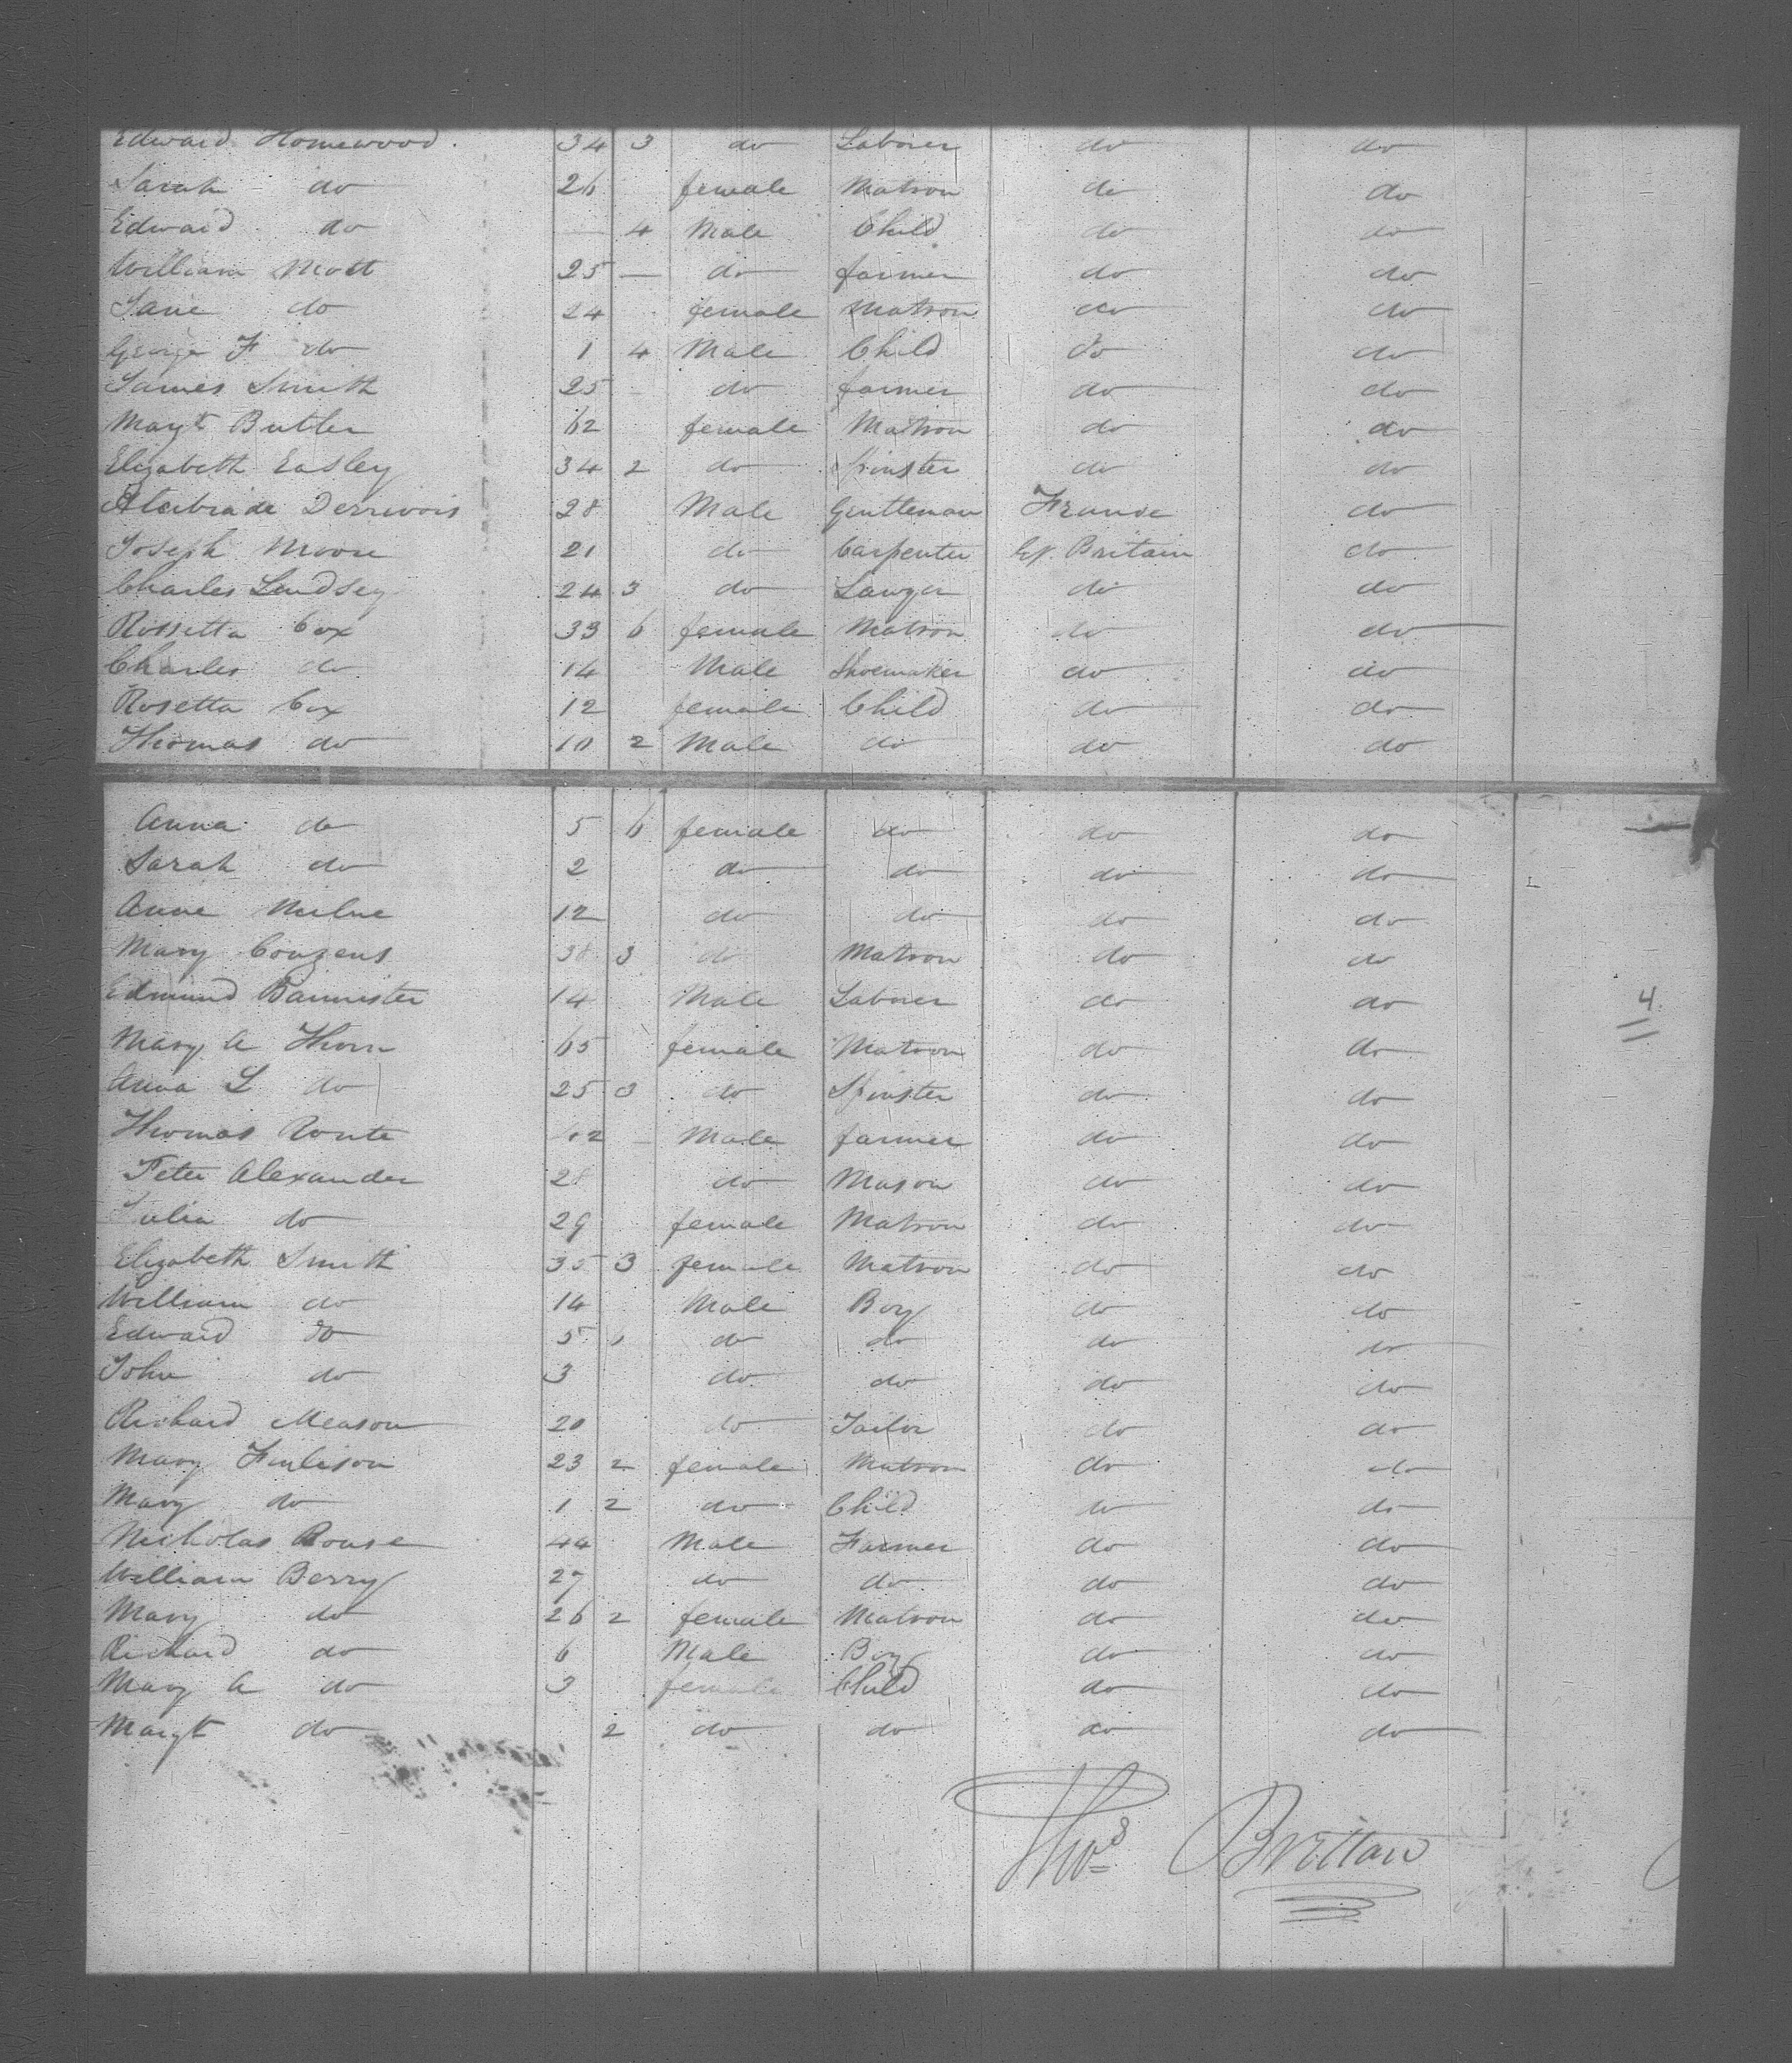 Edward Homewood. 34 3 do Laborer do do
Sarah do 26 female Matron do do
Edward do — 4 Male Child do do
William Mott 25 — do farmer do do
Jane do 24 female Matron do do
George F do 1 4 Male Child do do
James Smith 25 — do farmer do do
Mag't Butler 62 female Matron do do
Elizabeth Easley 34 2 do Spinster do do
28 Male Gentleman France do
Joseph Moore 21 do Carpenter Gt. Britain do
Charles Lindsey 24 3 do do do
Rossetta Cox 33 6 female Matron do do
Charles do 14 Male Shoemaker do do
Rosetta Cox 12 female Child do do
Thomas do 10 2 Male do do do
Anna do 5 6 female do do do
Sarah do 2 do do do do
Anne Milne 12 do do do do
Mary Couzens 38 3 do Matron do do
Edmund Bannister 14 Male Laborer do do
4.
Mary A Thorn 65 female Matron do do
Anna L do 25 3 do Spinster do do
Thomas Male farmer do do
Peter Alexander 28 do Mason do do
Julia do 29 female Matron do do
Elizabeth Smith 35 3 female Matron do do
William do 14 Male Boy do do
Edward do 5 1 do do do do
John do 3 do do do do
Richard Meason 20 do Tailor do do
Mary Finlison 23 2 female Matron do do
Mary do 1 2 do Child do do
Nicholas Rouse 44 Male Farmer do do
William Berry 27 do do do do
Mary do 26 2 female Matron do do
Richard do 6 Male Boy do do
Mary A do 3 female Child do do
Margt do 2 do do do do
Thos Brittan